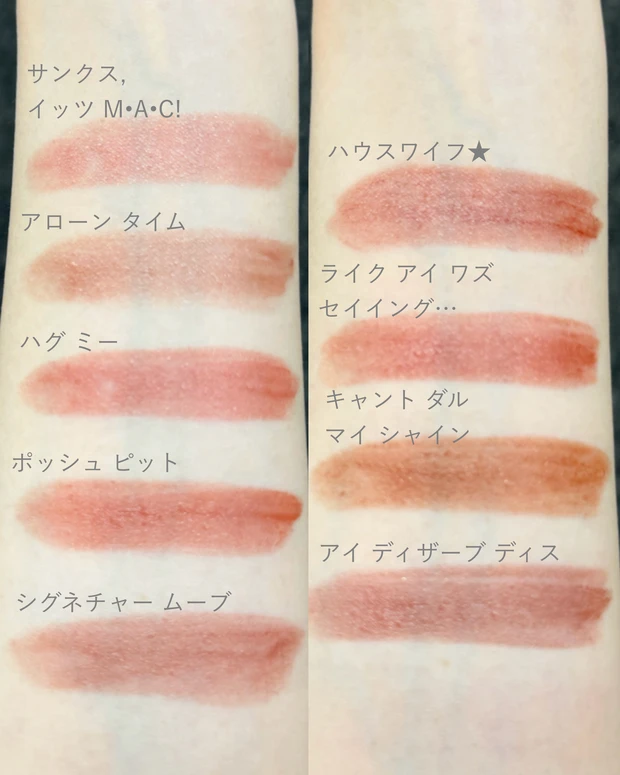 サンクス,
イッツ M•A•C!
アローン タイム
ハグ ミー
ポッシュ ピット
シグネチャー ムーブ
ハウスワイフ★
ライク アイ ワズ
セイイング…
キャント ダル
マイ シャイン
アイ ディザーブ ディス